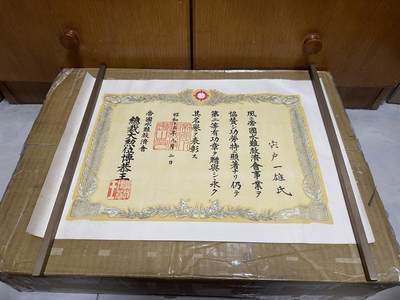 宍戸一雄氏
夙ニ帝國水難救済會事業ヲ
協賛シ功勞特ニ顕著ナリ仍テ
第二等有功章ヲ贈與シ永ク
其名譽ヲ表彰ス
昭和十五年八月二日
帝國水難救済會
總裁大勲位博恭王